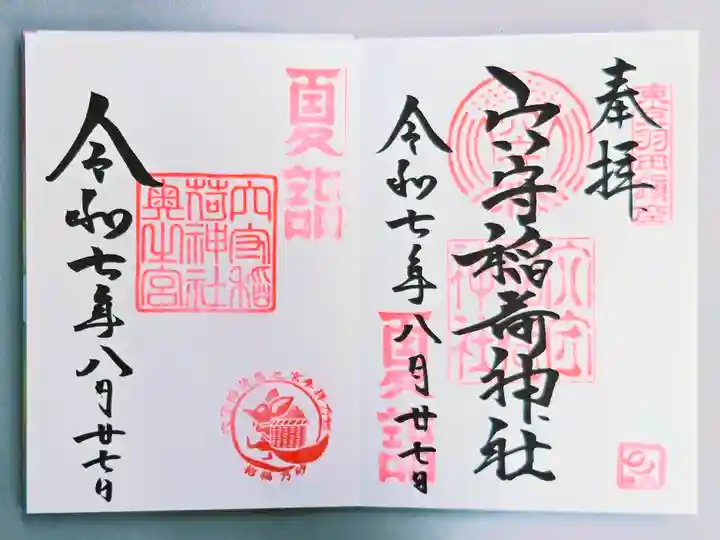 奉拝
東京羽田鎮座
穴守稲荷神社
穴守
神社
令和七年八月廿七日
夏詣
夏詣
穴守稲
荷神社
奥之宮
招福乃砂
令和七年八月廿七日